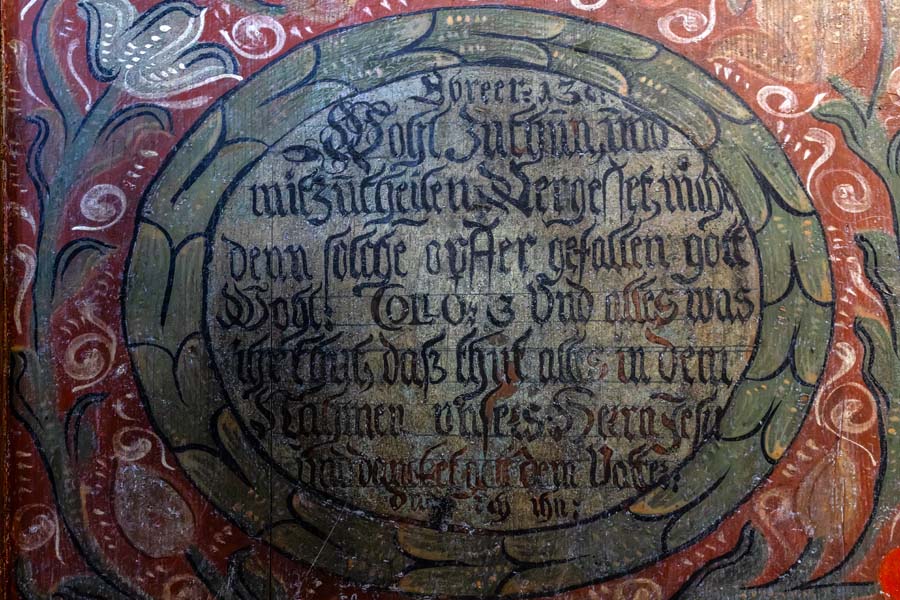 Ebreer: 13
Wohl Zuthun, und
mitzutheilen, Vergesset nicht
denn solche opffer gefallen gott
Wohl: Col. 3 Und alles was
ihr thut, daß thut alles in dem
Nahmen unsers Herrn Jesu
Und dancket gott dem Vatter:
durch ihn: